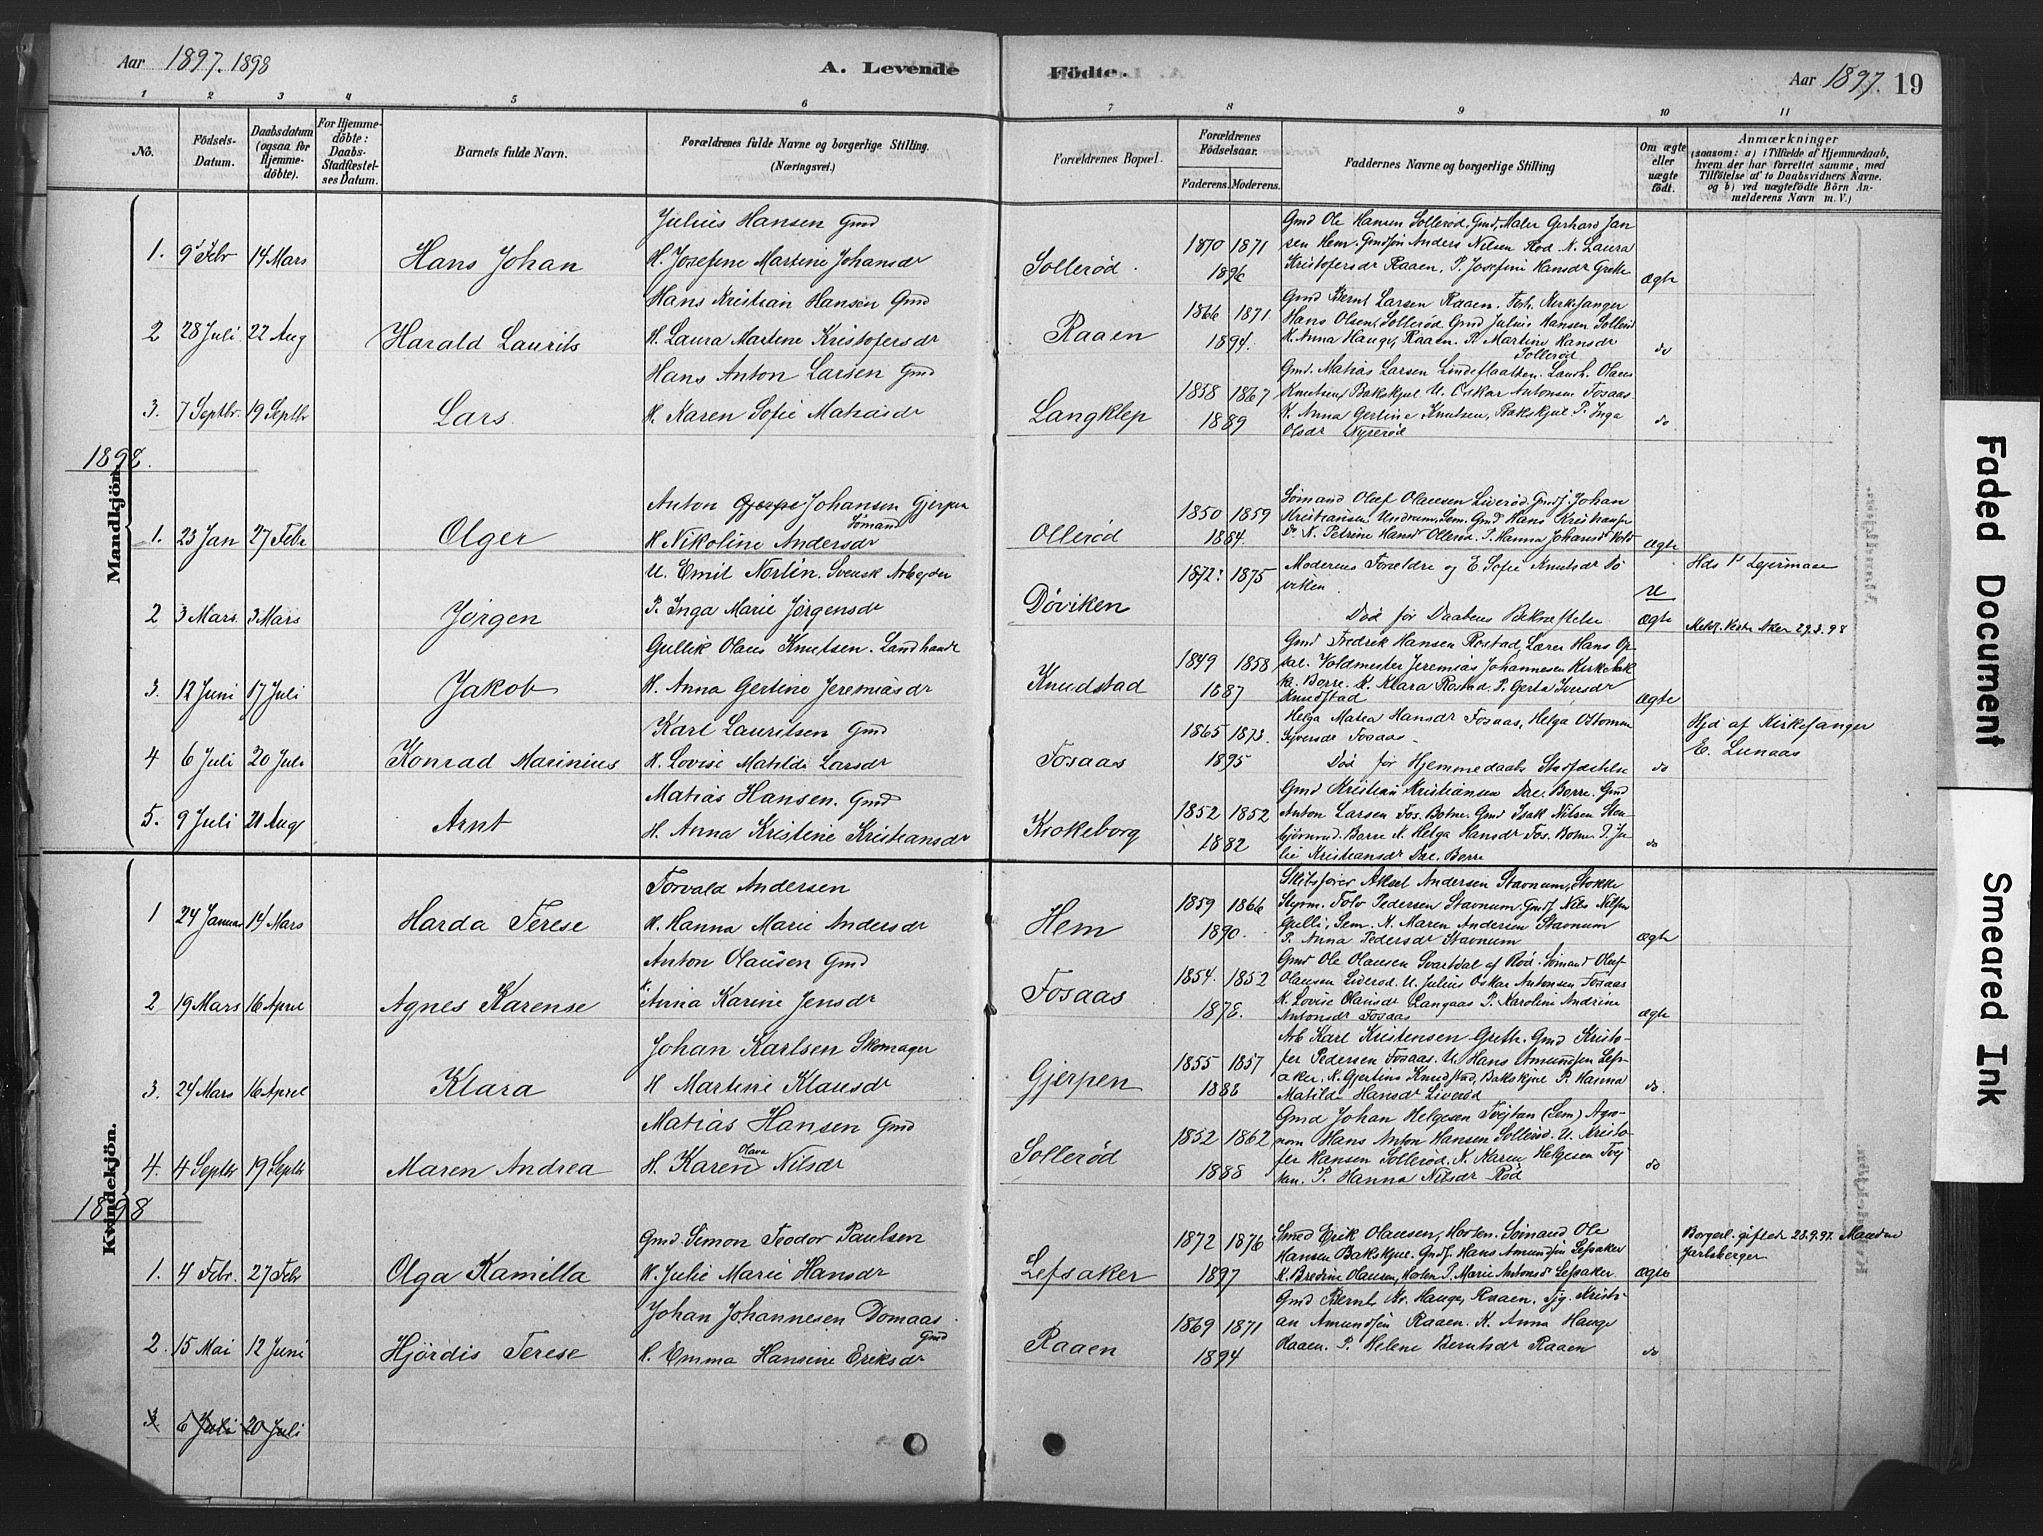 Aar 1897. 1898
A. Levende
Födte.
Aar 1897. 19
1 2 3 4 5 6 7 8 9 10 11
No.
Födsels-Datum.
Daabsdatum (ogsaa for Hjemmedöbte).
For Hjemmedöbte: Daabs-Stadfæstelses Datum.
Barnets fulde Navn.
Forældrenes fulde Navne og borgerlige Stilling. (Næringsvei.)
Forældrenes Bopæl.
Forældrenes Födselsaar. Faderens. Moderens.
Faddernes Navne og borgerlige Stilling
Om ægte eller uægte födt.
Anmærkninger (saasom: a) i Tilfælde af Hjemmedaab, hvem der har forrettet samme, med Tilföielse af to Daabsvidners Navne, og b) ved uægtefödte Börn Anmelderens Navn m. V.)
Mandkjön.
Julius Hansen Gmd
1. 9 Febr 14 Mars Hans Johan H. Josefine Martine Johansdr Sollerød. 1870 1871 1896 ægte
Gmd Ole Hansen Sollerød, Gmd, Maler Gerhard Jan
sen Hem. Gmdsøn Anders Nilsen Rød K. Laura
Kristofersdr Raaen, P. Josefine Hansdr Grette
Hans Kristian Hansen Gmd
2 28 Juli 22 Aug Harald Laurits H. Laura Martine Kristofersdr Raaen 1866 1871 1894. do
Gmd Bernt Larsen Raaen. Foh. Kirkesanger
Hans Olsen, Sollerød. Gmd Julius Hansen Sollerød
K. Anna Hauge, Raaen. P Martine Hansdr
Sollerød
Hans Anton Larsen Gmd
3. 7 Septbr 19 Septbr Lars H. Karen Sofie Matiasdr Langklep 1858 1867 1889 do
Gmd. Matias Larsen Lindeflaatten. Landh. Olaus
Knutsen, Bakskjul U. Oskar Antonsen Fosaas
K. Anna Gertine Knutsen, Bakskjul P. Inga
Olsdr Nyrerød
1898.
Anton Johansen Gjerpen
Sömand
1. 23 Jan 27 Febr Olger H Nikoline Andersdr Ollerød 1850 1859 1884. ægte
Sömand Oluf Olausen Liverød. Gmdf. Johan
Kristiansen Undrum, Sem. Gmd Hans Kristiansen
do K. Petrine Hansdr Ollerød. P. Hanna Johansdr
U. Emil Nortin. Svensk Arbejder
2 3 Mars. 3 Mars Jørgen P. Inga Marie Jørgensdr Døviken 1872? 1875 U ægte
Moderens Forældre og E. Sofie Knutsdr Dö
viken.
Död før Daabens Bekræftelse
Hds 1ste Lejermaal
Meldt. Vestre Aker 29.3.98
Gullik Olaus Knutsen. Landhandl
3. 12 Juni 17 Juli Jakob H. Anna Gertine Jeremiasdr Knudstad 1849 1858 1887 ægte
Gmd Fredrik Hansen Rostad Lærer Hans Op
sal. Voldmester Jeremias Johannesen Kirkebak
ka, Borre. K. Klara Rostad. P. Gerta Iversdr
Knudstad
Karl Lauritsen Gmd
4 6 Juli 20 Juli Konrad Marinius H. Lovise Matilde Larsdr Fosaas 1865 1873. 1895 do
Helga Matea Hansdr Fosaas, Helga Ottomine
Syversdr Fosaas -
Död før Hjemmedaabs Stadfæstelse
Hjd af Kirkesanger
E. Lunaas
Matias Hansen. Gmd
5. 9 Juli 21 Aug Arnt H. Anna Kristine Kristiansdr Krokeborg 1852 1852 1882 do
Gmd Kristian Kristiansen Dal. Borre. Gmd
Anton Larsen Fos. Botne. Gmd Isak Nilsen Sten
bjørnrød. Borre K. Helga Hansdr Fos. Botne. P. Ju
lie Kristiansdr Dal. Borre
Kvindekjön.
Torvald Andersen
1 24 Januar 14 Mars Harda Terese H. Hanna Marie Andersdr Hem 1859 1866 1890. ægte
Skibsfører Aksel Andersen Stavnum, Stokke
Styrm. Tolv Pedersen Stavnum. Gmdf. Nils Nilsen
Gulli, Sem. K. Maren Andersen Stavnum
P. Anna Pedersdr Stavnum
Anton Olausen Gmd
2 19 Mars 16 April Agnes Karense H. Anna Karine Jensdr Fosaas 1854. 1852 1878. ægte
Gmd Ole Olausen Svartdal af Rød. Sömand Oluf
Olausen Liverød. U. Julius Oskar Antonsen Fosaas
K. Lovise Olausdr Langaas P. Karoline Andrine
Antonsdr Fosaas
Johan Karlsen Skomager
3. 24 Mars 16 April Klara H Martine Klausdr Gjerpen 1855 1857 1888 do.
Arb Karl Kristensen Greth. Gmd Kristo-
fer Pedersen Fosaas. U. Hans Amundsen Lefs-
aker. K. Gjertine Knudstad, Bakskjul P. Hanna
Matilde Hansdr Liverød
Matias Hansen Gmd
Olava
4. 4 Septbr 19 Septbr Maren Andrea H. Karen Nilsdr Sollerød 1852 1862 1888 do
Gmd Johan Helgesen Tvejtan (Sem) Agro-
nom Hans Anton Hansen Sollerød. U. Kristo-
fer Hansen Sollerød. K. Karen Helgesen Tvej
tan. P. Hanna Nilsdr Rød
1898
Gmd. Simon Teodor Paulsen
1. 4 Febr. 27 Febr Olga Kamilla H. Julie Marie Hansdr Lefsaker 1872 1876 1897 ægte
Smed Erik Olausen, Horten. Sömand Ole
Hansen Bakskjul. Gmdf. Hans Amundsen Lefsaker
K. Bredine Olausen, Horten P. Marie Antonsdr Lefsaker.
Borgerl. giftede 28.9.97.
Jarlsberger
Johan Johannesen Domaas.
Gmd
2. 15 Mai 12 Juni Hjördis Terese H. Emma Hansine Eriksdr Raaen 1869 1871 1894 do
Gmd Bernt Kr. Hauge, Raaen. Tjg. Kristi-
an Amundsen Raaen. K. Anna Hauge
Raaen. P. Helene Berntsdr Raaen
3. 6 Juli 20 Juli
Faded Document
Smeared Ink